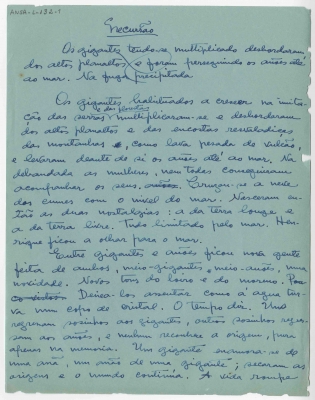 ANSA-L-132-1
Excursão
Os gigantes tendo-se multiplicado desbordaram
dos altos planaltos e foram perseguindo os anões até
ao mar. Na fuga precipitada
Os gigantes habituados a crescer na imita-
ção das serras e das plantas multiplicaram-se e desbordaram
dos altos planaltos e das encostas
das montanhas, como lava pesada do vulcão,
e levaram deante de si os anões até ao mar. Na
debandada as mulheres, nem todas conseguiram
acompanhar os seus. Cruzou-se a neve
dos cumes com o nivel do mar. Nasceram en-
tão as duas nostalgias: a da terra longe e
a da terra livre. Tudo limitado pelo mar. Hen-
rique ficou a olhar para o mar.
Entre gigantes e anões ficou nova gente
feita de ambos, meio-gigantes e meio-anões, uma
novidade. Novos tons do louro e do moreno.
Deixa-los assentar como a agua tur-
va num copo de cristal. O tempo diz. Uns
regressam sosinhos aos gigantes, outros sosinhos regres-
sam aos anões, e nenhum reconhece a origem, pura
apenas na memoria. Um gigante enamora-se de
uma anã, um anão de uma giganta; secaram as
origens e o mundo continúa. A vida rompe